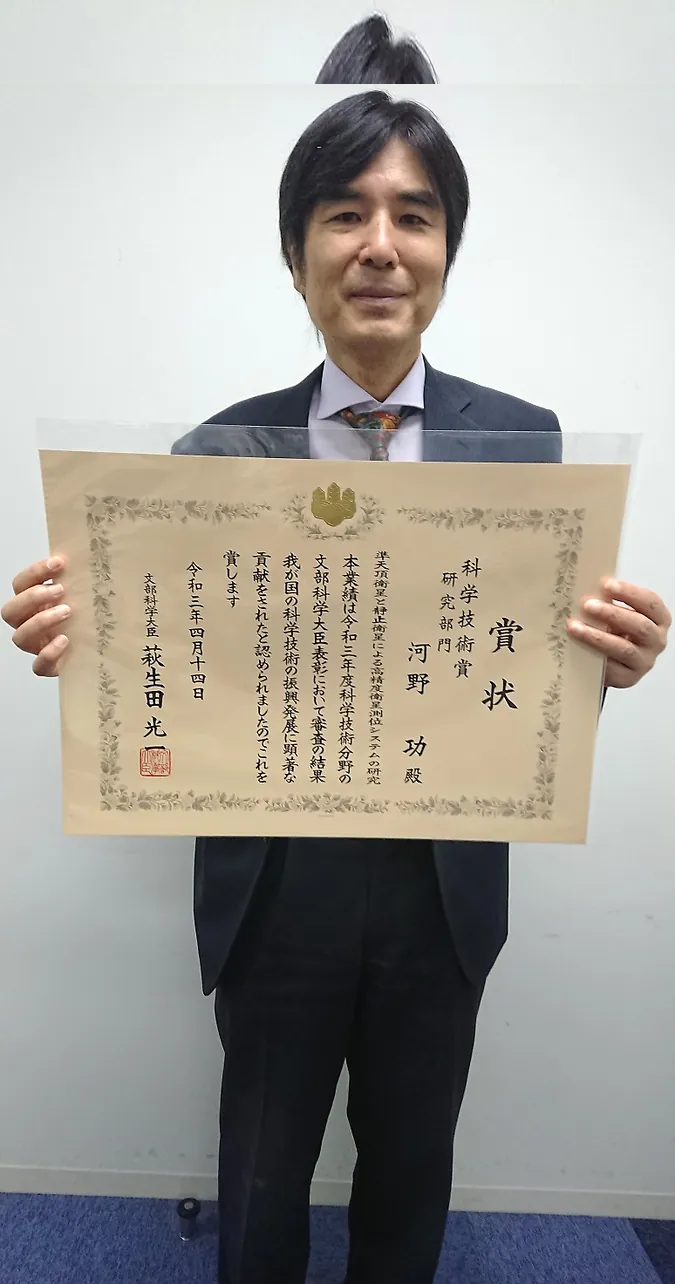 賞状
科学技術賞
研究部門
河野 功 殿
準天頂衛星と静止衛星による高精度衛星測位システムの研究
本業績は令和三年度科学技術分野の
文部科学大臣表彰において審査の結果
我が国の科学技術の振興発展に顕著な
貢献をされたと認められましたのでこれを
賞します
令和三年四月十四日
文部科学大臣 萩生田 光一